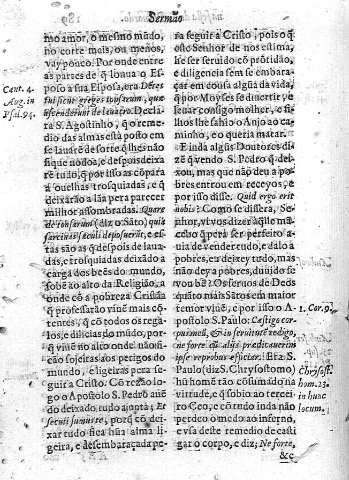 Sermão
mo amor, o mesmo mũdo,
no corte mais, ou menos,
vay pouco. Por onde entre
as partes de q̃ louua o Es-
poso a sua Esposa, era Dẽtes
tui sicut greges tonsarum, quæ
ascenderunt de lauacro. Declara
S. Agostinho, q̃ o reme-
dio das almas está posto em
se lauarẽ de sorte q̃ lhes não
fique nodoa, e despois deixa
rẽ tudo, q̃ por isso as cõpara
a ouelhas trosquiadas, e q̃
deixarão a lãa pera parecer
milhor assombradas. Quare
de tonsarum (diz o Sãto) quia
sarcinas seculi deposuerũt, e es-
tas são as q̃ despois de laua-
das, e trosquiadas deixão a
carga dos beẽs do mundo,
sobẽ ao alto da Religião, a
onde cõ a pobreza Cristãa
q̃ professarão viuẽ mais cõ
tentes, q̃ cõ todos os rega-
los, e dilicias do mũdo, por-
q̃ viuẽ no alto onde não es-
tão sojeitas aos perigos do
mundo, e ligeiras pera se-
guir a Cristo. Cõ rezão lo-
go o Apostolo S. Pedro auẽ
do deixado tudo ajunta; Et
secuti sumus te, porq̃ cõ dei-
xar tudo fica hũa alma li-
geira, e desembaraçada pe-
Cant. 4.
Aug. in
Psal. 94.
ra seguir a Cristo, pois o q̃
este Senhor de nos estima,
he ser seruido cõ prõtidão,
e diligencia sem se embara-
çar em cousa algũa da vida,
q̃ por Moyses se diuertir, e
leuar consigo molher, e fi-
lhos lhe sahio o Anjo ao ca-
minho, e o queria matar.
E inda algũs Doutores di-
zẽ q̃ vendo S. Pedro q̃ dei-
xou, mas que não deu a po-
bres entrou em receyos, e
por isso disse. Quid ergo erit
nobis? Como se dissera, Se-
nhor, vivos dizer aq̃lle mã-
cebo q̃ pera ser perfeito a-
uia de vender tudo, e dalo a
pobres, eu deixey tudo, mas
não dey a pobres, duuido se
vou bẽ? Os seruos de Deos
quãto mais Sãtos em maior
temor viuẽ, e por isso o A-
postolo S. Paulo: Castigo cor-
pus meũ, & in seruitutẽ redigo,
ne forte cũ alijs prædicauerim
ipse reprobus efficiar. Era S.
Paulo (diz S. Chrysostomo)
hũ homẽ tão cõsumado na
virtude, q̃ sobio ao tercei-
ro Ceo, e cõ tudo inda não
perdeo o medo ao inferno,
e vsa deste remedio de casti-
gar o corpo, e diz; Ne forte,
&c
1. Cor. 9.
Chrysost.
hom. 23.
in hunc
locum.